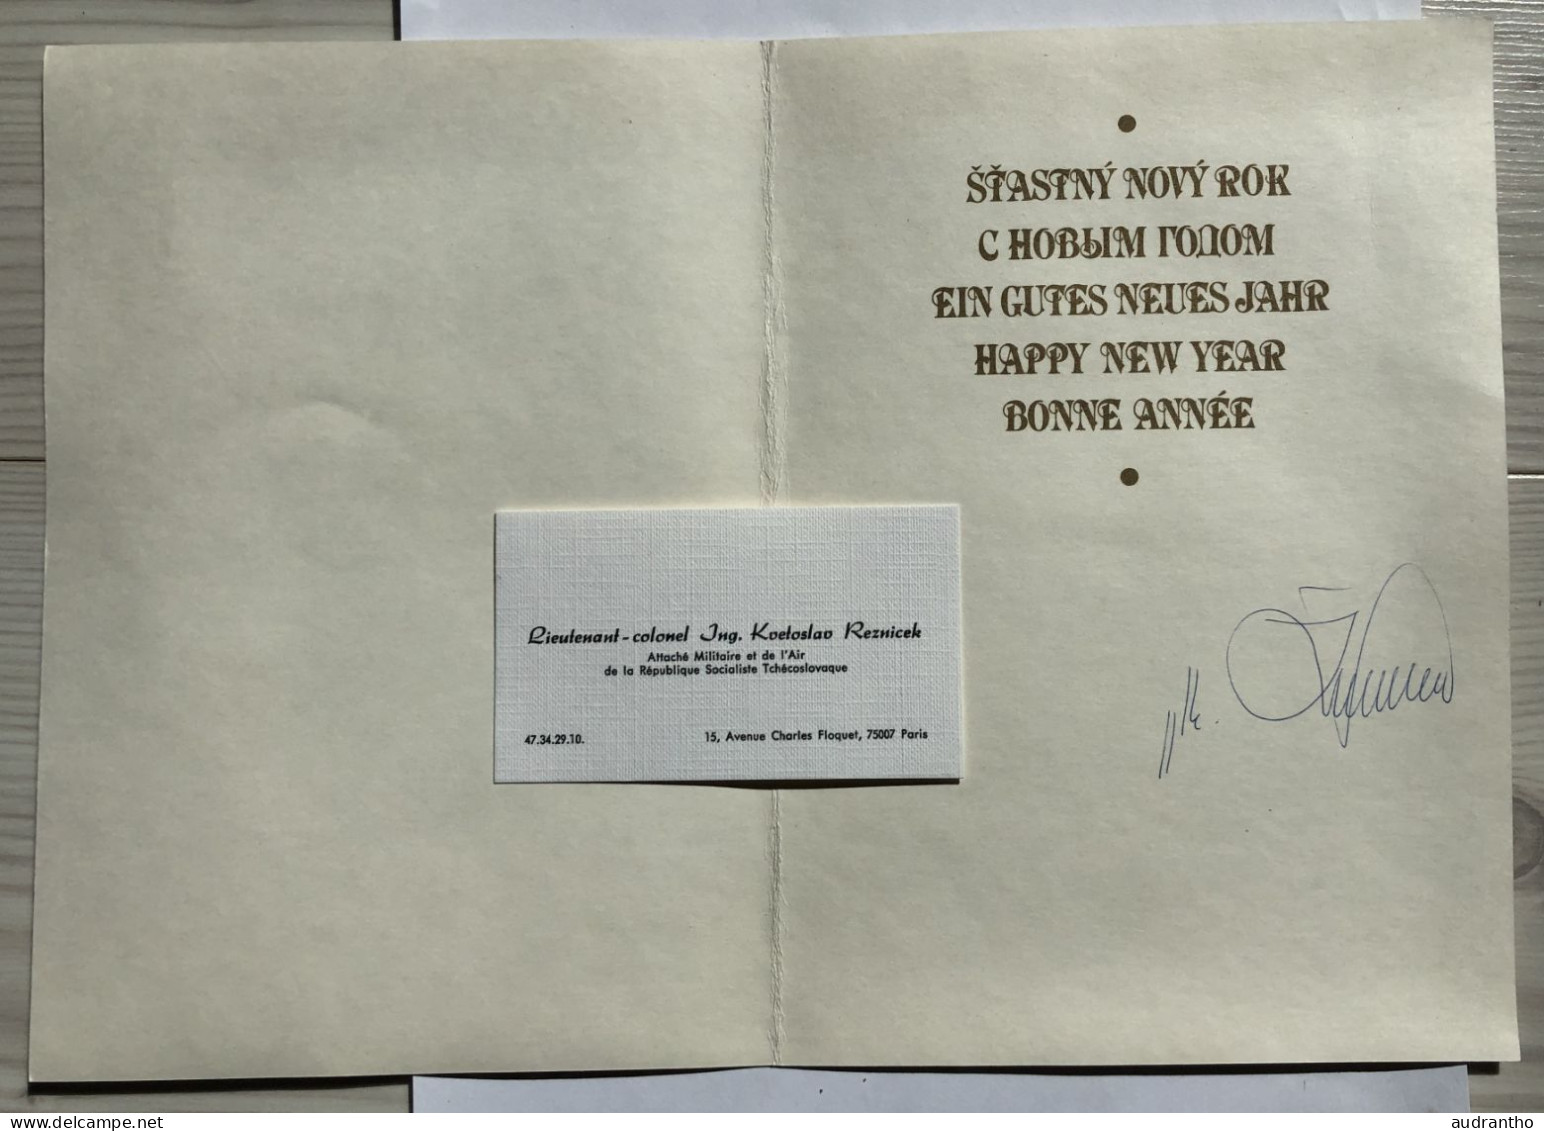 ŠŤASTNÝ NOVÝ ROK
С НОВЫМ ГОДОМ
EIN GUTES NEUES JAHR
HAPPY NEW YEAR
BONNE ANNÉE
Lieutenant-colonel Ing. Kvetoslav Reznicek
Attaché Militaire et de l'Air
de la République Socialiste Tchécoslovaque
47.34.29.10.
15, Avenue Charles Floquet, 75007 Paris
delcampe.net
audrantho